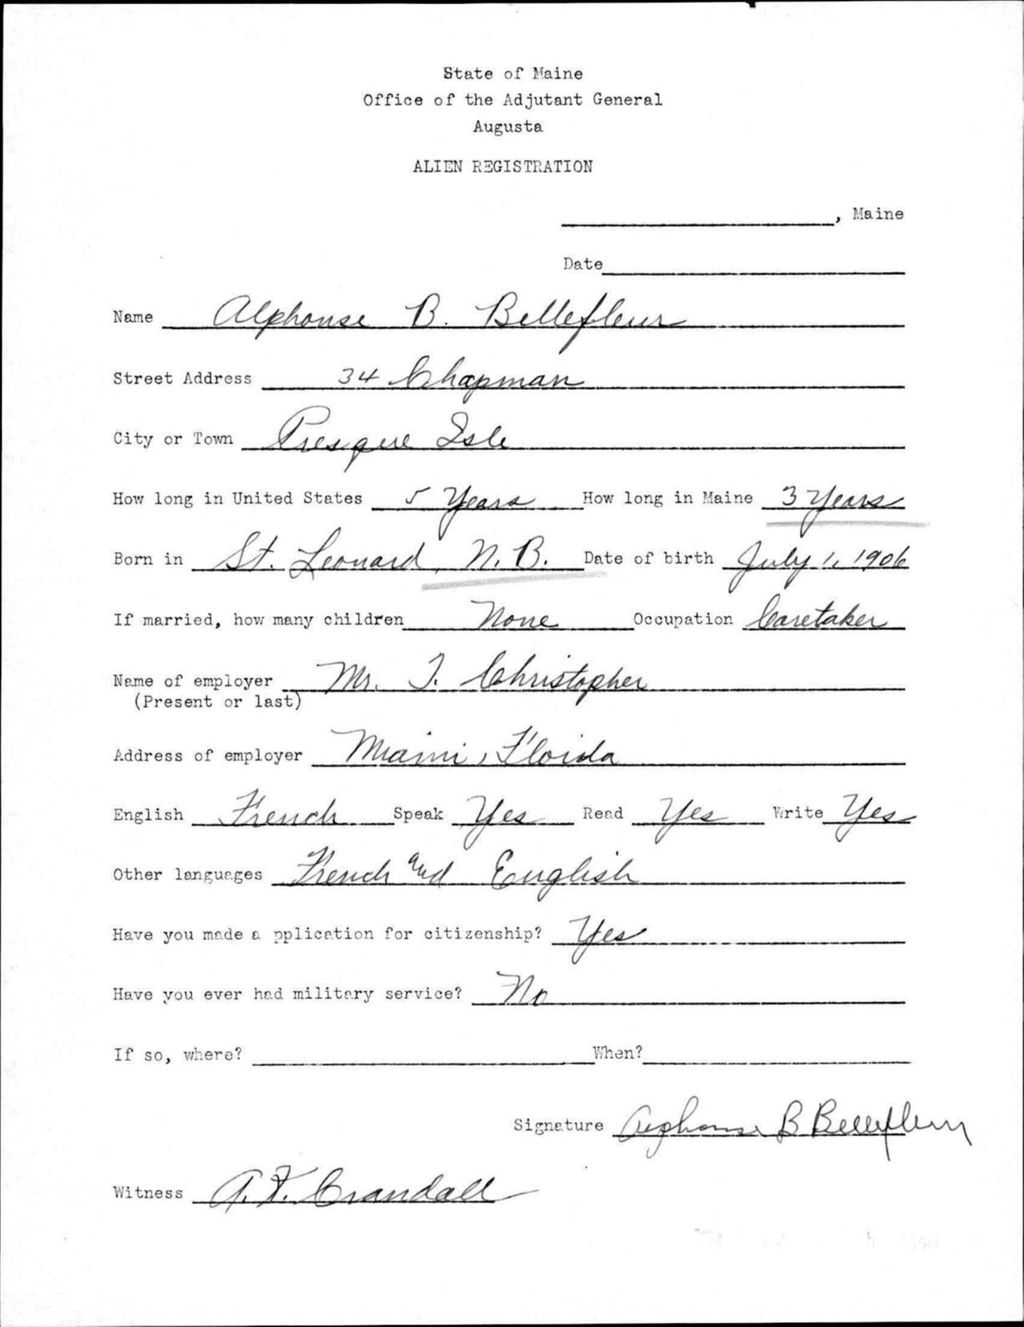 State of Maine
Office of the Adjutant General
Augusta
ALIEN REGISTRATION
, Maine
Date
Name Alphonse B. Bellefleur
Street Address 34 Chapman
City or Town Presque Isle
How long in United States 5 Years How long in Maine 3 Years
Born in St. Leonard, N.B. Date of birth July 1, 1906
If married, how many children None Occupation Caretaker
Name of employer Mr. T. Christopher
(Present or last)
Address of employer Miami, Florida
English French Speak Yes Read Yes Write Yes
Other languages French and English
Have you made a pplication for citizenship? Yes
Have you ever had military service? No
If so, where? When?
Signature Alphonse B Bellefleur
Witness A. F. Crandall